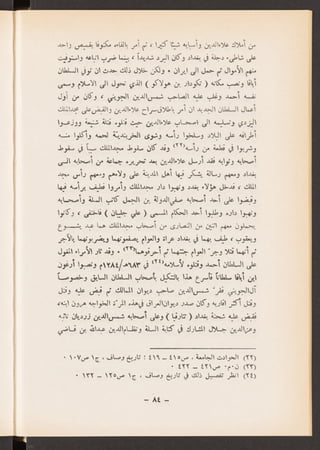 من أملاك علاءالدين وأسبابه شيئا كثيرا ، ثم أمر بالقاءه مكتوفا بقميص واحد
على شاطىء دجلة في بغداد وكان البرد شديداً ، بينما ضرب اتباعه واستوفيت
منهم الأموال ثم حمل الى ايران • ولكن خلال ذلك حدث ان توفي السلطان
أباقا ونصب مكانه ( تكودار بن هولاكو ) الذي تحول الى الاسلام وسمى
نفسه أحمد وتغلب عليه الصاحب شمس‌الدين الجويني ، وكان من أول
أعمال السلطان الجديد ان أمر باطلاق‌سراح علاءالدين والقبض‌على مجدالملك
اليزدي وتسليمه الى اصحاب علاءالدين حيث قتلوه قتلة شنيعة ووزعوا
أطرافه على البلاد وسلخوا رأسه وشوى الخربنديّة لحمه وأكلوا منه
وشربوا في قطعة من رأسه(٢٢) وقد كان سقوط مجدالملك سبباً في سقوط
أصحابه ونوابه فقد أرسل علاءالدين بعد تحريره جماعة من أصحابه الى
بغداد ومعهم رسالة يشكر فيها أهل المدينة على ولائهم ومعهم رأس مجد
الملك ، فدخل هؤلاء بغداد ونهبوا دار مجدالملك وأمروا فطيف برأسه فيها
وقبضوا على أحد أصحابه صفي‌الدولة بن الجمل كاتب السلة وأصحابه
ونهبوا داره وطلبوا أحد الحكام المسمى ( علي جلبان ) فاختفى ، وكانوا
يحملون معهم اثنين من النصارى من أصحاب مجدالملك هما عبد يشـــوع
ويعقوب ، طيف بهما في بغداد عراة والعوام يصفعونهما ويضربونهما بالآجر
ثم أنهما قتلا وجرّ العوام جثتهما ثم أحرقوهما(٢٣) • وقد ثار الأمراء المغول
على السلطان أحمد وقتلوه لأسلامه(٢٤) في ٦٨٣هـ/١٢٨٤م ونصبوا أرغون
ابن أباقا سلطاناً فأسرع هذا بالتنكيل بأصحاب السلطان السابق وخصوصـاً
آل‌الجويني ففرّ شمس‌الدين صاحب ديوان المالك ثم قبض عليه وقتل
وقتل أكثر أقاربه وكان صدر ديوان‌العراق في‌هذه المرّة الخواجه هرون ابنه،
فقبض عليه شحنة بغداد ( تتارقيا ) وعلى أصحابه شمس‌الدين زرديان نائبه
وعزالدين جـلال المشارك في كتابة السلة ونظـام‌الدين عبدالله بن قـاضي
(٢٢) الحوادث الجامعة ، ص٤١٥ ــ ٤١٩ : تاريخ وصاف ، ج١ ص١٠٧ •
(٢٣) ن٠م٠ ص٤٢١ ــ ٤٢٢ •
(٢٤) انظر تفصيل ذلك في تاريخ وصاف ، ج١ ص١٢٥ ــ ١٣٢ •
ــ ٨٤ ــ